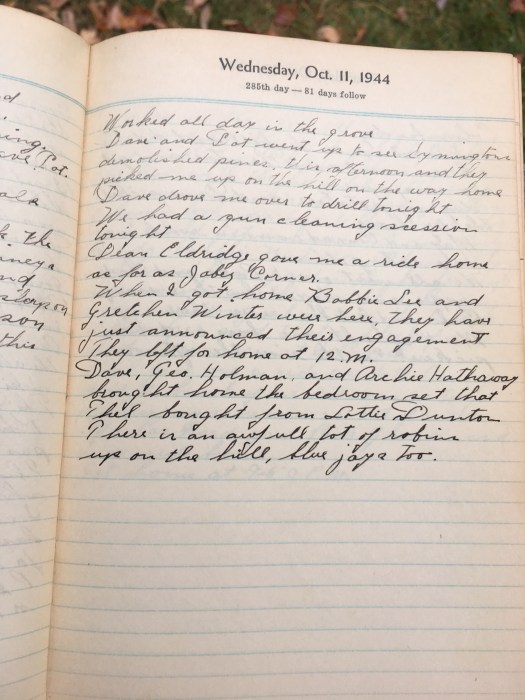 Wednesday, Oct. 11, 1944
285th day — 81 days follow
Worked all day in the grove
Dave and Dot went up to see Symingtons
demolished pines this afternoon and they
picked me up on the hill on the way home
Dave drove me over to drill tonight
We had a gun cleaning scession
tonight
Dean Eldridge gave me a ride home
as far as Jabez Corner.
When I got home Bobbie Lee and
Gretchen Winter were here, they have
just announced their engagement
They left for home at 12 M.
Dave, Geo. Holman, and Archie Hathaway
brought home the bedroom set that
bought from Lottie Dunton
There is an awfull lot of robins
up on the hill, blue jays too.